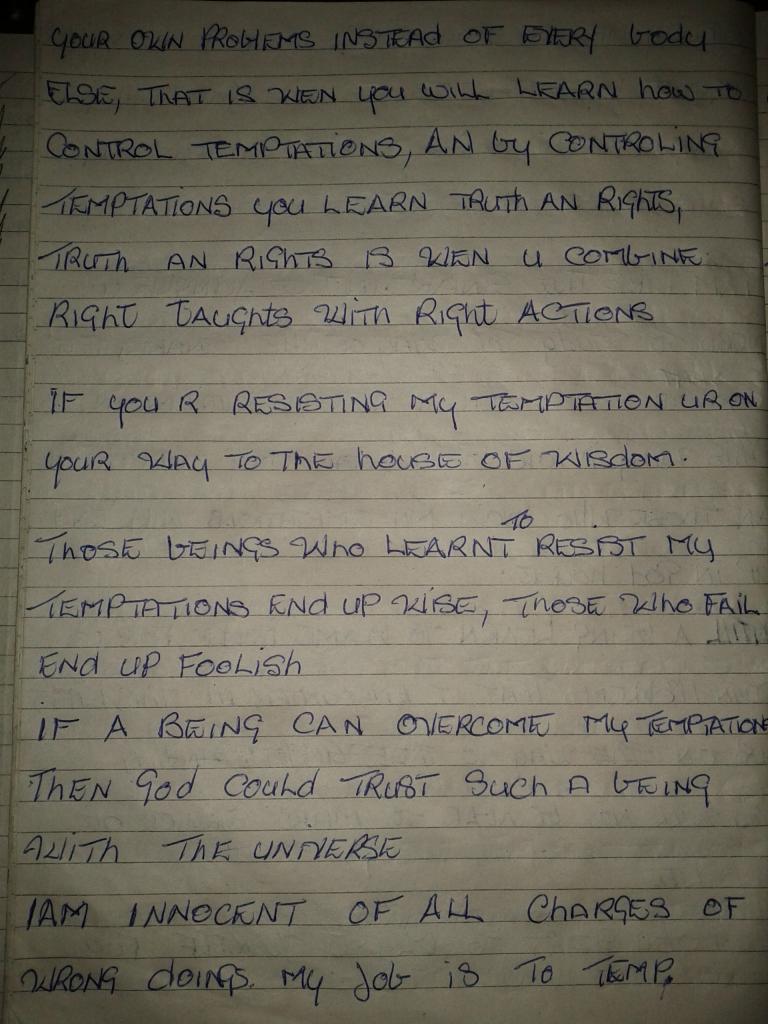 YOUR OWN PROBLEMS INSTEAD OF EVERY body
ELSE, THAT IS WEN you WILL LEARN how TO
CONTROL TEMPTATIONS, AN by CONTROLING
TEMPTATIONS you LEARN TRUTh AN RIghTS,
TRUTh AN RIghTS IS WEN U COMbINE
RIghT TAUghTS WITh RIghT ACTIONS
IF you R RESISTING My TEMPTATION UR ON
yOUR WAy TO ThE hOUSE OF WISdOM.
ThOSE bEINGS Who LEARNT TO RESIST My
TEMPTATIONS ENd UP WISE, ThOSE Who FAIL
ENd UP FOOLISh
IF A BEING CAN OVERCOME My TEMPTATION
ThEN God COULd TRUST Such A bEING
WITh ThE UNIVERSE
I AM INNOCENT OF ALL ChARGES OF
WRONG dOINGS. My Job is TO TEMP.